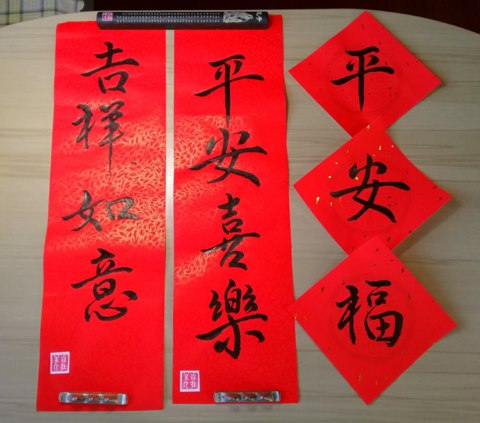 吉祥如意
平安喜樂
平
安
福